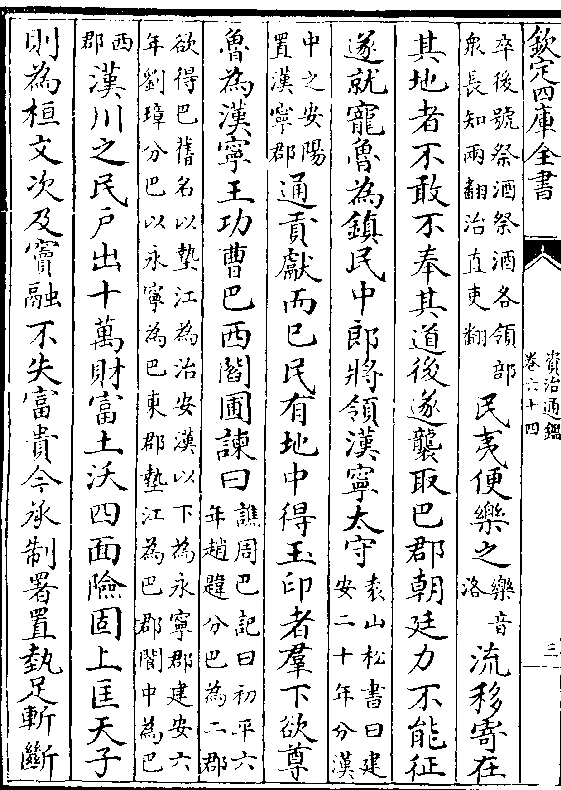 欽定四庫全書
資治通鑑
卷六十四
三
卒後號祭酒祭酒各領部
衆長知兩翻治直吏翻
民夷便樂之
樂音
洛
流移寄在
其地者不敢不奉其道後遂襲取巴郡朝廷力不能征
遂就寵魯為鎮民中郎將領漢寧太守
袁山松書曰建
安二十年分漢
中之安陽
置漢寧郡
通貢獻而已民有地中得玉印者羣下欲尊
魯為漢寧王功曹巴西閻圃諫曰
譙周巴記曰初平六
年趙韙分巴為二郡
欲得巴舊名以墊江為治安漢以下為永寧郡建安六
年劉璋分巴以永寧為巴東郡墊江為巴郡閬中為巴
西
郡
漢川之民戶出十萬財富土沃四面險固上匡天子
則為桓文次及竇融不失富貴今承制署置勢足斬斷